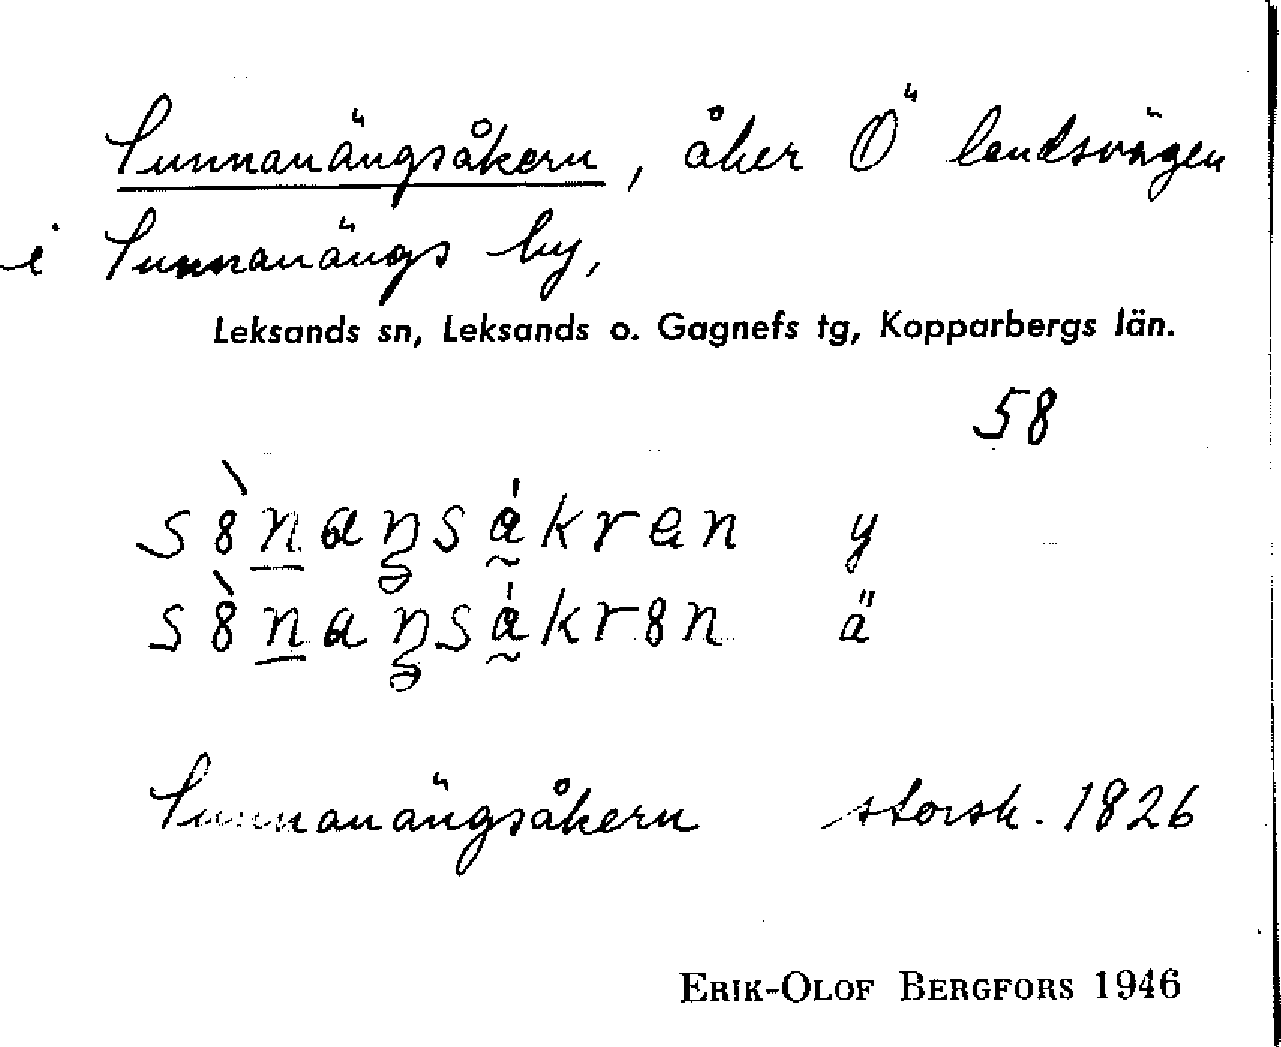 Sunnanängsåkern, åker Ö landsvägen
i Sunnanängs by,
Leksands sn, Leksands o. Gagnefs tg, Kopparbergs län.
58
y
ä
Sunnanängsåkern storsk. 1826
ERIK-OLOF BERGFORS 1946